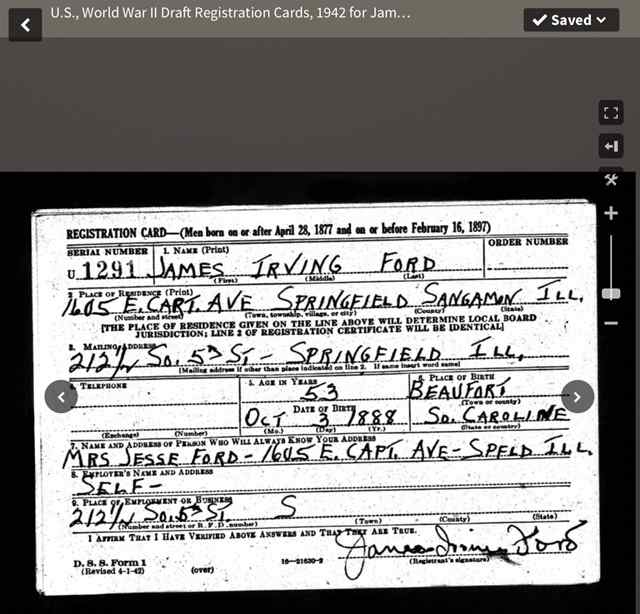 U.S., World War II Draft Registration Cards, 1942 for Jam...
Saved
REGISTRATION CARD—(Men born on or after April 28, 1877 and on or before February 16, 1897)
SERIAL NUMBER 1. NAME (Print) ORDER NUMBER
U 1291 JAMES IRVING FORD
(First) (Middle) (Last)
2. PLACE OF RESIDENCE (Print)
1605 E. CAPT. AVE SPRINGFIELD SANGAMON ILL.
(Number and street) (Town, township, village, or city) (County) (State)
[THE PLACE OF RESIDENCE GIVEN ON THE LINE ABOVE WILL DETERMINE LOCAL BOARD
JURISDICTION; LINE 2 OF REGISTRATION CERTIFICATE WILL BE IDENTICAL]
3. MAILING ADDRESS
212½ So. 5th St - SPRINGFIELD ILL.
[Mailing address if other than place indicated on line 2. If same insert word same]
4. TELEPHONE 5. AGE IN YEARS 6. PLACE OF BIRTH
53 BEAUFORT
DATE OF BIRTH (Town or county)
OCT 3 1888 SO. CAROLINE
(Exchange) (Number) (Mo.) (Day) (Yr.) (State or country)
7. NAME AND ADDRESS OF PERSON WHO WILL ALWAYS KNOW YOUR ADDRESS
MRS JESSE FORD - 1605 E. CAPT. AVE - SPFLD ILL.
8. EMPLOYER'S NAME AND ADDRESS
SELF -
9. PLACE OF EMPLOYMENT OR BUSINESS
212½ So. 5th St. S
(Number and street or R. F. D. number) (Town) (County) (State)
I AFFIRM THAT I HAVE VERIFIED ABOVE ANSWERS AND THAT THEY ARE TRUE.
James Irving Ford
D. S. S. Form 1 (Registrant's signature)
(Revised 4-1-42) (over) 16—21630-2